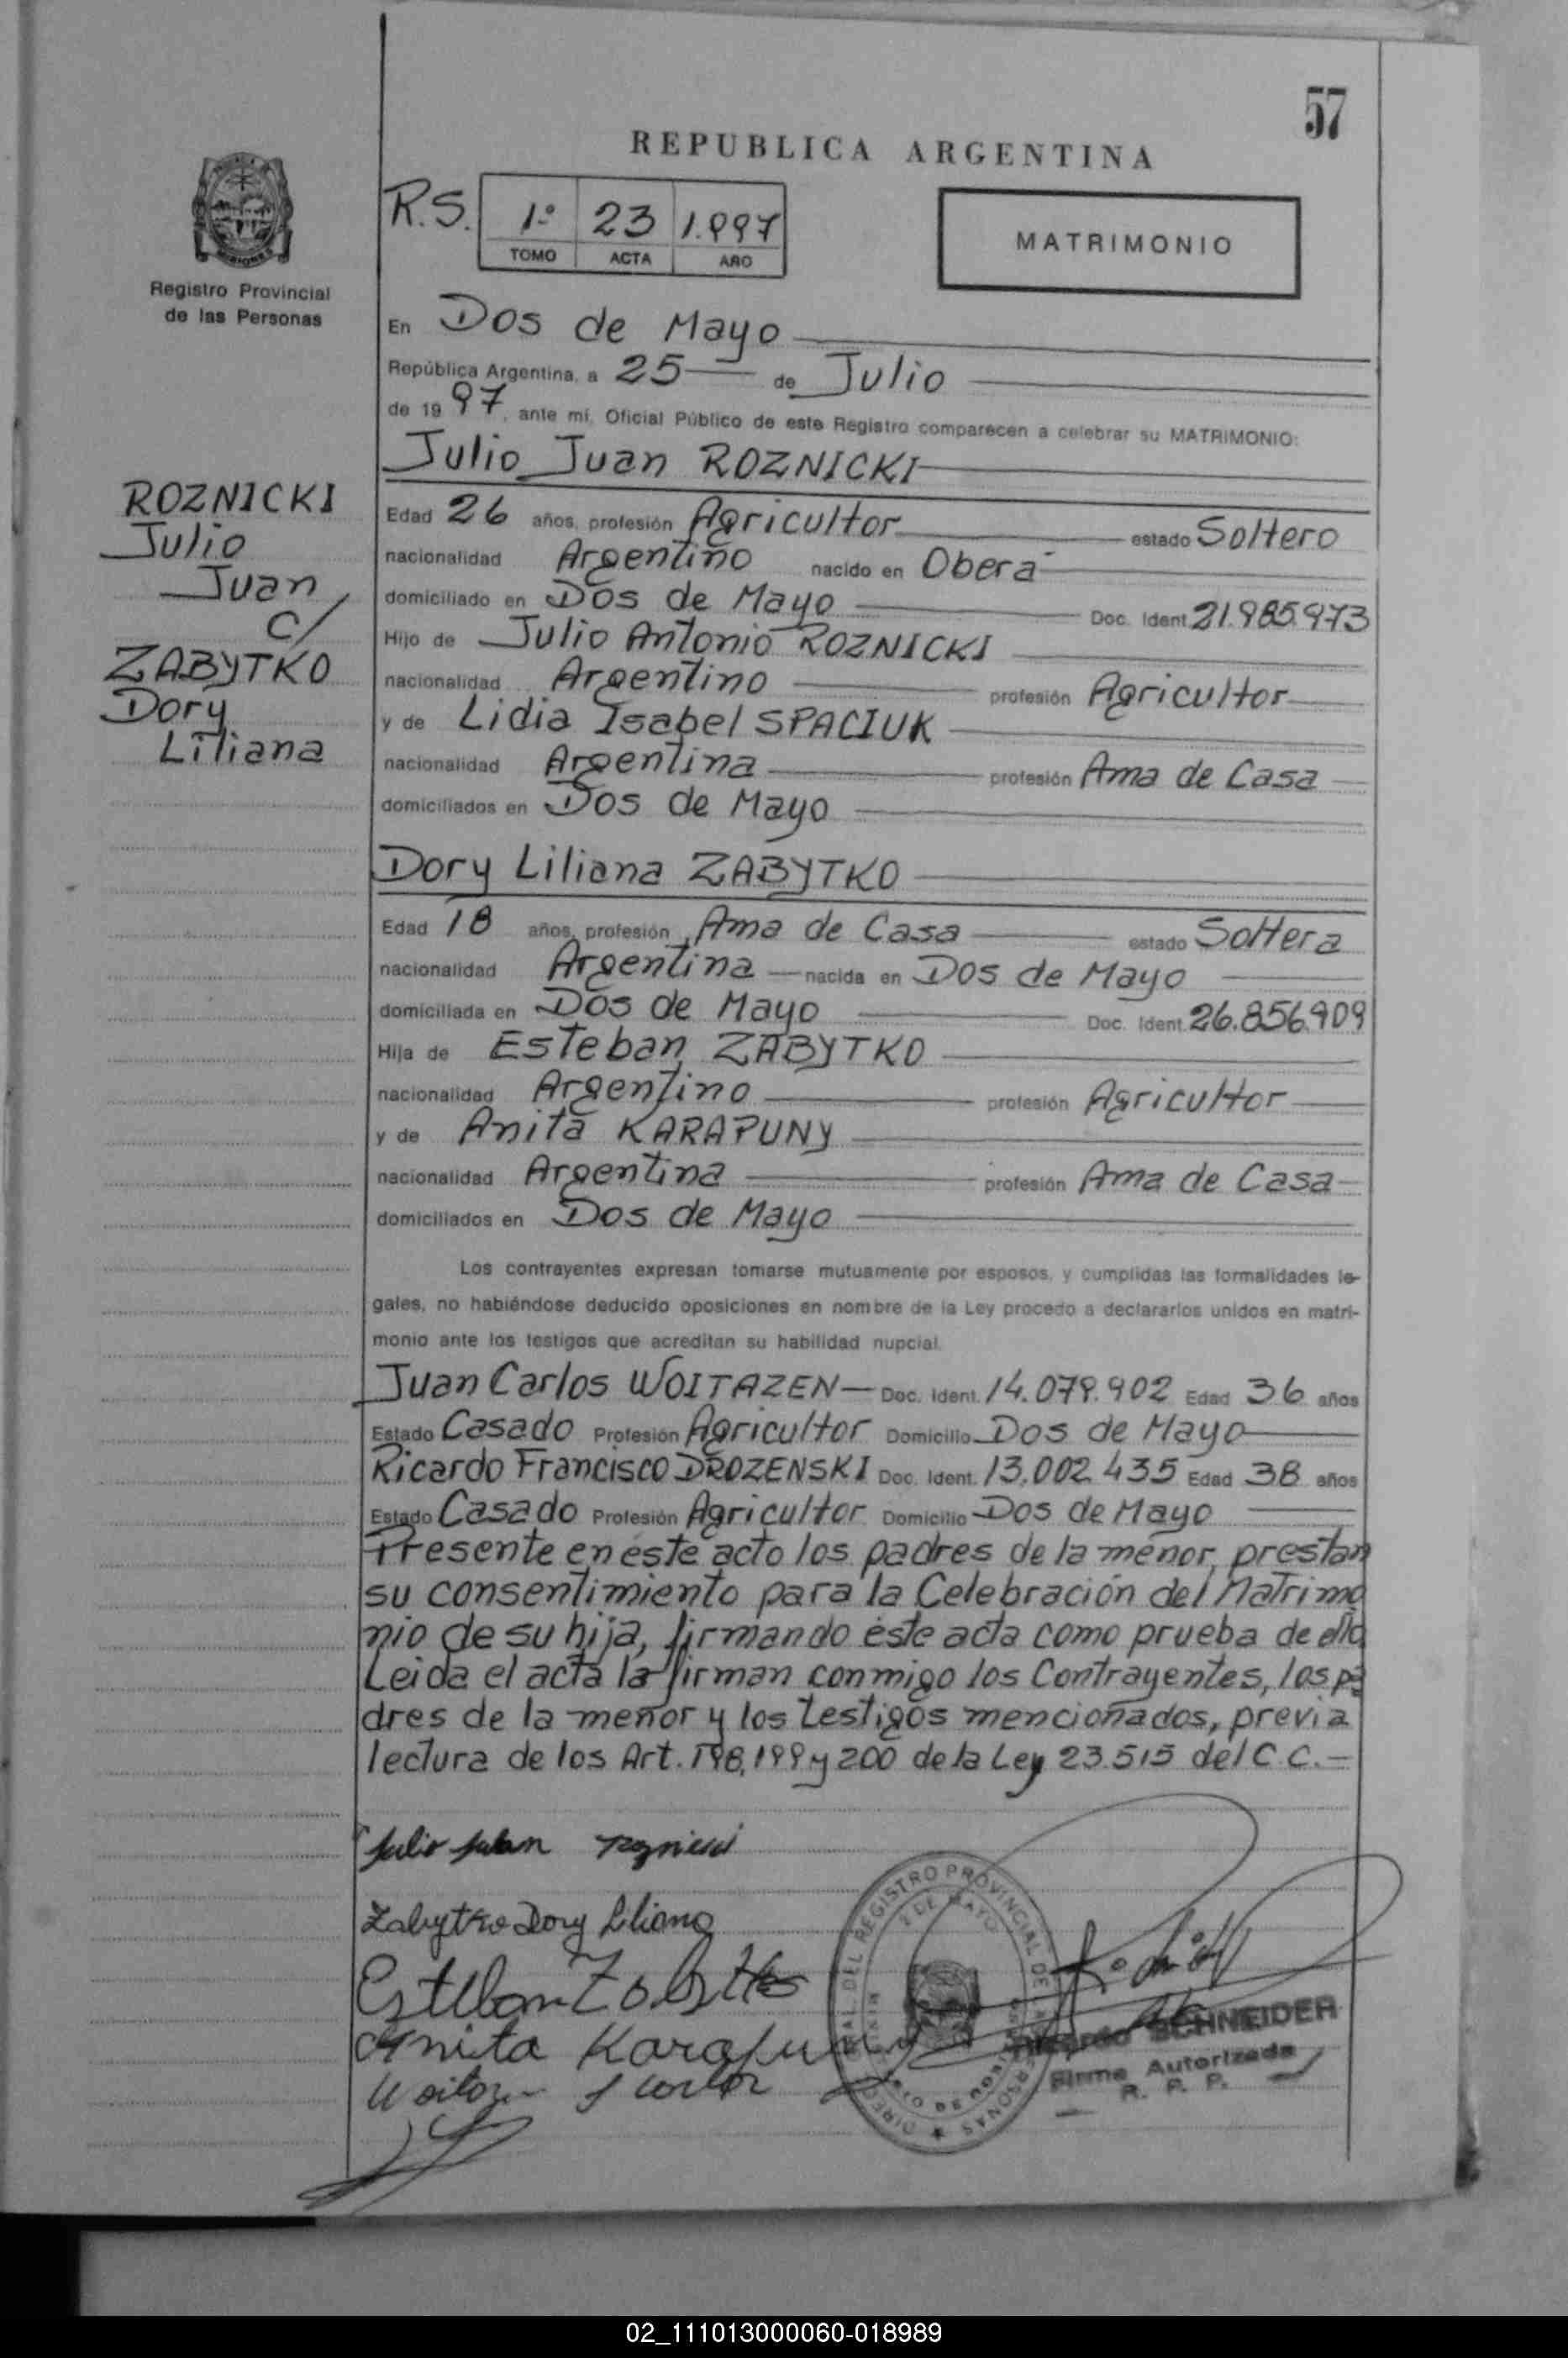 57
REPUBLICA ARGENTINA
R.S. 1º 23 1.997
TOMO ACTA AÑO
MATRIMONIO
MISIONES
Registro Provincial
de las Personas
ROZNICKI
Julio
Juan
c/
ZABYTKO
Dory
Liliana
En Dos de Mayo
República Argentina, a 25 de Julio
de 1997, ante mí, Oficial Público de este Registro comparecen a celebrar su MATRIMONIO:
Julio Juan ROZNICKI
Edad 26 años, profesión Agricultor estado Soltero
nacionalidad Argentino nacido en Oberá
domiciliado en Dos de Mayo Doc. Ident. 21.985.973
Hijo de Julio Antonio ROZNICKI
nacionalidad Argentino profesión Agricultor
y de Lidia Isabel SPACIUK
nacionalidad Argentina profesión Ama de Casa
domiciliados en Dos de Mayo
Dory Liliana ZABYTKO
Edad 18 años, profesión Ama de Casa estado Soltera
nacionalidad Argentina nacida en Dos de Mayo
domiciliada en Dos de Mayo Doc. Ident. 26.856.909
Hija de Esteban ZABYTKO
nacionalidad Argentino profesión Agricultor
y de Anita KARAPUNY
nacionalidad Argentina profesión Ama de Casa
domiciliados en Dos de Mayo
Los contrayentes expresan tomarse mutuamente por esposos, y cumplidas las formalidades le-
gales, no habiéndose deducido oposiciones en nombre de la Ley procedo a declararlos unidos en matri-
monio ante los testigos que acreditan su habilidad nupcial.
Juan Carlos WOITAZEN Doc. Ident. 14.079.902 Edad 36 años
Estado Casado Profesión Agricultor Domicilio Dos de Mayo
Ricardo Francisco DROZENSKI Doc. Ident. 13.002.435 Edad 38 años
Estado Casado Profesión Agricultor Domicilio Dos de Mayo
Presente en éste acto los padres de la menor, prestan
su consentimiento para la Celebración del Matrimo
nio de su hija, firmando éste acta como prueba de ello
Leida el acta la firman conmigo los Contrayentes, los pa
dres de la menor y los testigos mencionados, previa
lectura de los Art. 198, 199 y 200 de la Ley 23.515 del C.C.-
Julio Juan
Zabytko Dory Liliana
Esteban Zabytko
Anita Karapuny
REGISTRO PROVINCIAL DE
2 DE MAYO
SCHNEIDER
Firma Autorizada
R. P. P.
02_111013000060-018989